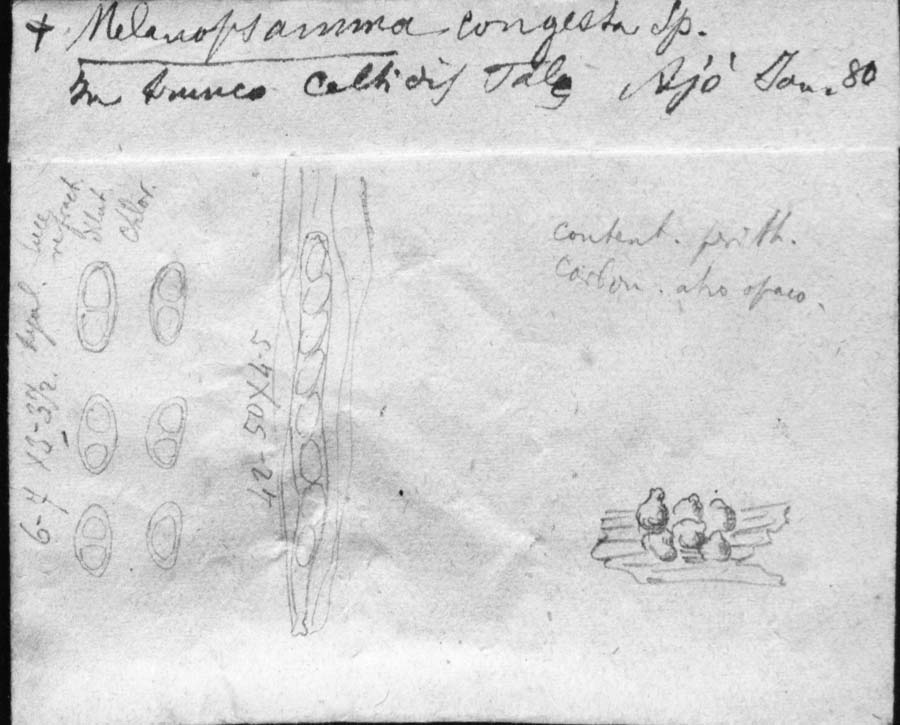 + Melanopsamma congesta Sp.
In trunco Celtidis Tala Ajó Jan. 80
content. perith.
carbon. atro opaco.
hyal. luce
refract.
dilut.
chlor.
6-7 X 3-3½.
42-50 X 4-5